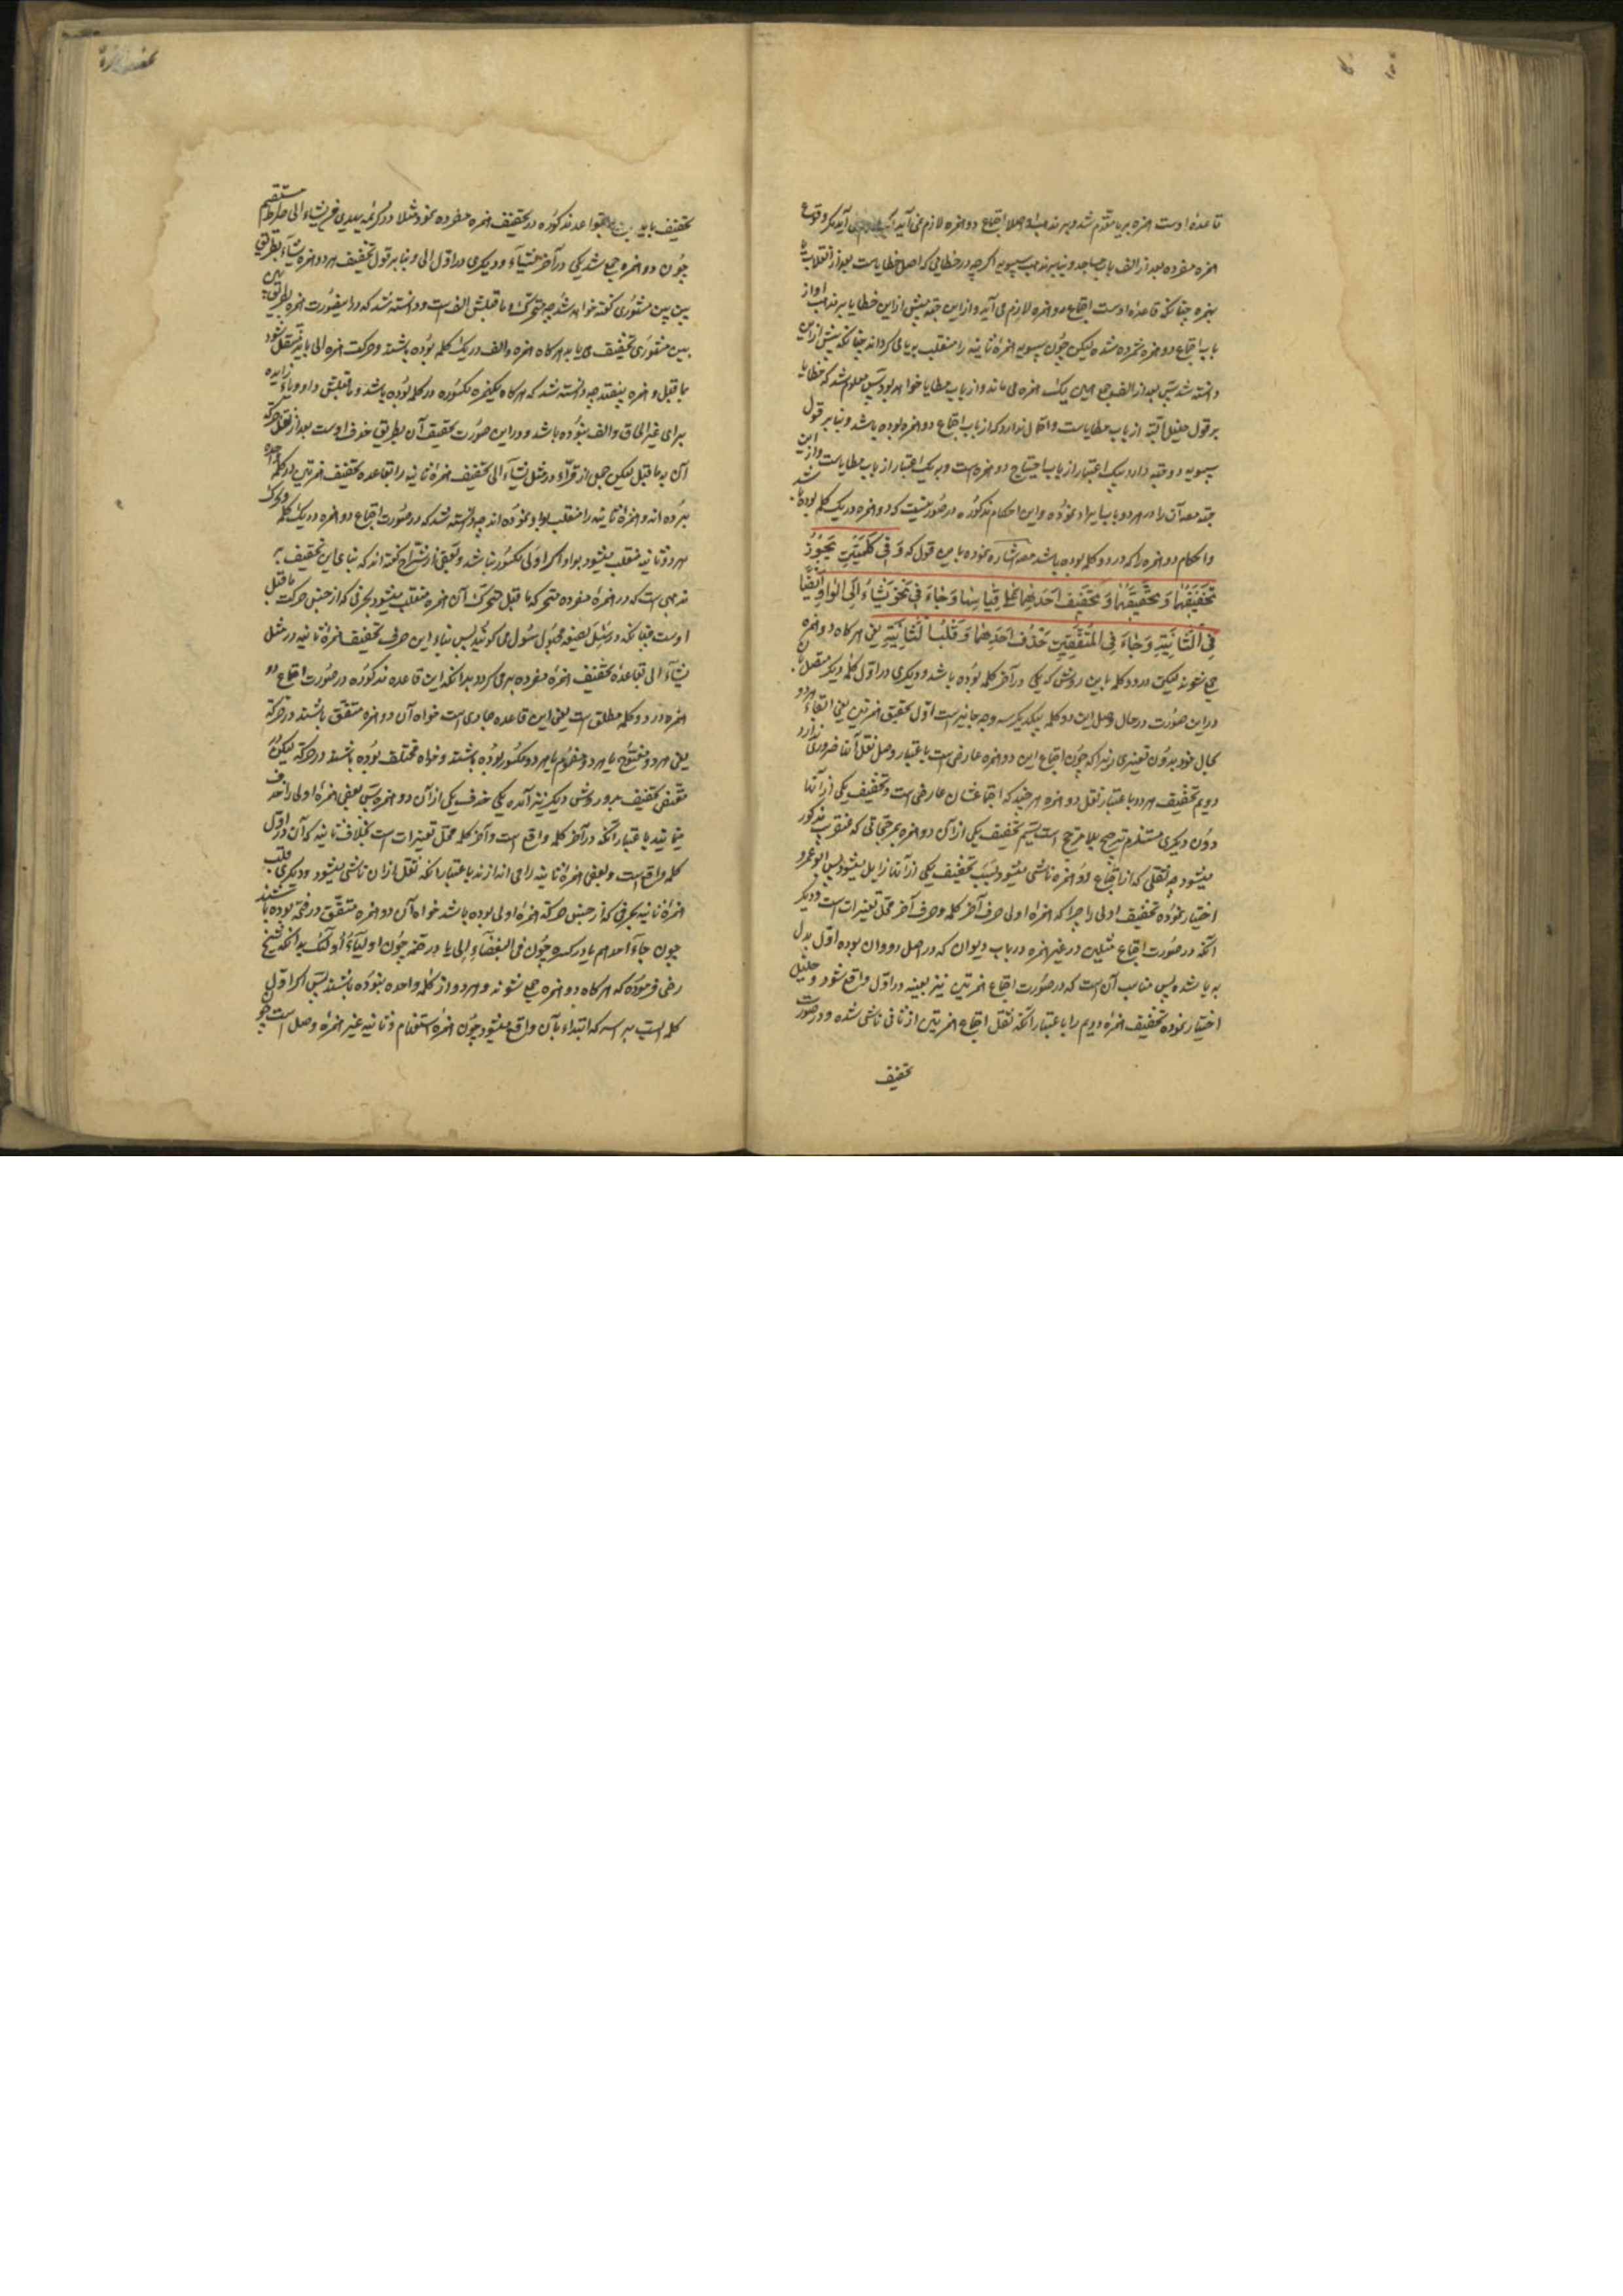 قاعدهٔ اوست همزه بر یا مقدم شد و بر مذهب او اصلا اجتماع دو همزه لازم نمی آید
همزه مفرده بعد از الف باب مساجد و بنا بر مذهب سیبویه اگر چه در خطایی که اصل خطایاست بعد از انقلاب یا
بهمزه چنانکه قاعدهٔ اوست اجتماع دو همزه لازم می آید و از این جهة پیش از این خطایا بر مذهب او از
باب اجتماع دو همزه شمرده شده لیکن چون سیبویه همزهٔ ثانیه را منقلب بیای گرداند چنانکه پیش از این
دانسته شد پس بعد از الف جمع همین یک همزه می ماند و از باب مطایا خواهد بود پس معلوم شد که خطایا
بر قول خلیل البته از باب مطایاست و احتمال ندارد که از باب اجتماع دو همزه بوده باشد و بنا بر قول
سیبویه دو جهة دارد بیک اعتبار از باب اجتماع دو همزه است و بیک اعتبار از باب مطایاست و از این
جهة مص آن را در هر دو باب ایراد نموده و این احکام مذکوره در صورتیست که دو همزه در یک کلمه بوده باشد
و احکام دو همزه را که در دو کلمه بوده باشد مص اشاره نموده باین قول که وَفِی کَلِمَتَیْنِ یَجُوزُ
تَحْقِیقُهُمَا وَتَخْفِیفُهُمَا وَتَخْفِیفُ اَحَدِهِمَا عَلی قِیَاسِهَا وَجَاءَ فِی نَحْوِ یَشَاءُ اِلَی الْوَاوُ اَیْضًا
فِی الثَّانِیَةِ وَجَاءَ فِی الْمُتَّفِقَتَیْنِ حَذْفُ اَحَدِهِمَا وَقَلْبُ الثَّانِیَةِ یعنی هر گاه دو همزه
جمع شوند لیکن در دو کلمه باین روش که یکی در آخر کلمه بوده باشد و دیگری در اول کلمه دیگر متصل بآن
در این صورت در حال وصل این دو کلمه بیکدیگر سه وجه جایز است اول تحقیق همزتین یعنی ابقاء هر دو
بحال خود بدون تغییری زیرا که چون اجتماع این دو همزه عارضی است باعتبار وصل ثقل آنها ضروری ندارد
دویم تخفیف هر دو باعتبار ثقل دو همزه هر چند که اجتماعشان عارضی است و تخفیف یکی از آنها
دون دیگری مستلزم ترجیح بلا مرجح است سیم تخفیف یکی از آن دو همزه بمرجحاتی که عنقریب مذکور
میشود چه ثقلی که از اجتماع دو همزه ناشی میشود بسبب تخفیف یکی از آنها زایل میشود پس ابو عمرو
اختیار نموده تخفیف اولی را چرا که همزه اولی حرف آخر کلمه و حرف آخر محل تغییرات است و دیگر
آنکه در صورت اجتماع مثلین در غیر همزه در باب دیوان که در اصل دووان بوده اول بدل
به یا شده پس مناسب آن است که در صورت اجتماع همزتین نیز تغییر در اول واقع شود و خلیل
اختیار نموده تخفیف همزهٔ دویم را باعتبار آنکه ثقل اجتماع همزتین از ثانی ناشی شده و در صورت
تخفیف
تخفیف باید بقواعد مذکوره در تخفیف همزه مفرده نمود مثلا در کریمه یهدی من یشاء الی صراط مستقیم
چون دو همزه جمع شد یکی در آخر یشاء و دیگری در اول الی و بنا بر قول تخفیف هر دو همزه یشاء بطریق
بین بین مشهوری گفته خواهد شد چه متحرک و ما قبلش الف است و دانسته شد که در این صورت همزه بطریق بین
بین مشهوری تخفیف می یابد
بما قبل و همزه بیفتد چه دانسته شد که هر گاه همزه مکسوره در کلمه بوده باشد و ما قبلش واو و یاء زایده
برای غیر الحاق و الف نبوده باشد و در این صورت تخفیف آن بطریق حذف اوست بعد از نقل حرکة
آن به ما قبل لیکن جمعی از قراء در مثل یشاء الی تخفیف همزهٔ ثانیه را بقاعده تخفیف همزتین در کلمه واحده
برده اند و همزهٔ ثانیه را منقلب بواو نموده اند چه دانسته شد که در صورت اجتماع دو همزه در یک کلمه
هر دو ثانیه منقلب میشود بواو اگر اولی مکسور نباشد و بعضی از شراح گفته اند که بنای این تخفیف بر
مذهبی است که در همزهٔ مفرده متحرکه ما قبل متحرک آن همزه منقلب میشود بحرفی که از جنس حرکت ما قبل
اوست چنانکه در سُئِلَ بصیغه مجهول سُوِل می گویند پس بناء این حرف تخفیف همزهٔ ثانیه در مثل
یشاء الی بقاعدهٔ تخفیف همزهٔ مفرده بر می گردد بدانکه این قاعده مذکوره در صورت اجتماع دو
همزه در دو کلمه مطلق است یعنی این قاعده جاری است خواه آن دو همزه متفق باشند در حرکة
یعنی هر دو مفتوح یا هر دو مضموم یا هر دو مکسور بوده باشند و خواه مختلف بوده باشند در حرکة لیکن در
متفق تخفیف بدو روش دیگر نیز آمده یکی حذف یکی از آن دو همزه پس بعضی همزهٔ اولی را حذف
مینمایند باعتبار آنکه در آخر کلمه واقع است و آخر کلمه محل تغییرات است بخلاف ثانیه که آن در اول
کلمه واقع است و بعضی همزهٔ ثانیه را می اندازند باعتبار آنکه ثقل از آن ناشی میشود و دیگری قلب
همزهٔ ثانیه بحرفی که از جنس حرکة همزهٔ اولی بوده باشد خواه آن دو همزه متفق در فتحه بوده باشند
چون جاءَ احدهم یا در کسره چون فی البغضاءِ اِلی یا در ضمه چون اولیاءُ اُولئک بدانکه شیخ
رضی فرموده که هر گاه دو همزه جمع شوند و هر دو از کلمه واحده نبوده باشند پس اگر اول
کلمه ایست به راسه که ابتداء بآن واقع میشود چون همزهٔ استفهام و ثانیه غیر همزهٔ وصل است